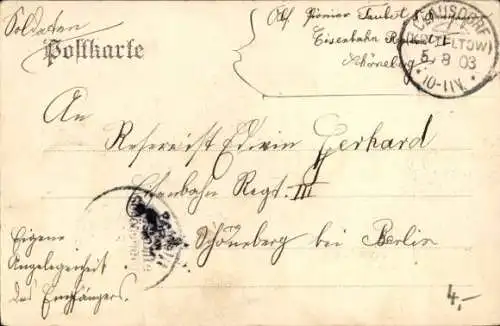 Soldaten
Postkarte
Abs. Pionier Taubst
Eisenbahn Regmt. III
Schöneberg
CLAUSDORF
(KR. TELTOW)
5 8 03
10-11V.
An
Reservist Edwin Gerhard
Eisenbahn Regt. III
Schöneberg bei Berlin
Eigene
Angelegenheit
des Empfängers.
4,-